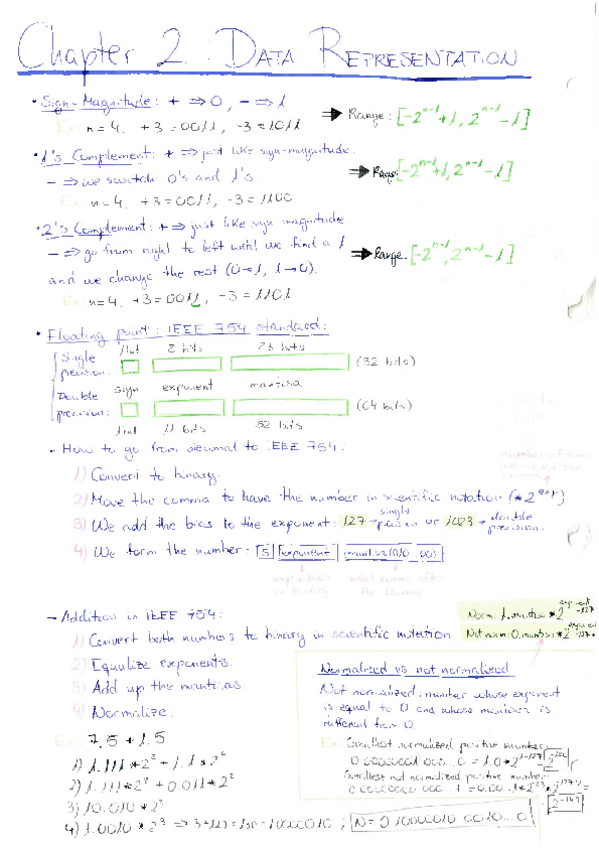 Chapter 2: DATA REPRESENTATION
• Sign-Magnitude: + ⇒ 0, - ⇒ 1 ⇒ Range: [-2^(n-1)+1, 2^(n-1)-1]
Ex: n=4. +3=0011, -3=1011
• 1's Complement: + ⇒ just like sign-magnitude.
- ⇒ we switch 0's and 1's ⇒ Range: [-2^(n-1)+1, 2^(n-1)-1]
Ex: n=4. +3=0011, -3=1100
• 2's Complement: + ⇒ just like sign magnitude
- ⇒ go from right to left until we find a 1 ⇒ Range: [-2^(n-1), 2^(n-1)-1]
and we change the rest (0→1, 1→0).
Ex: n=4. +3=0011, -3=1101
• Floading point: IEEE 754 standard:
1bit 8 bits 23 bits
Single precision: (32 bits)
sign exponent mantisa
Double precision: (64 bits)
1bit 11 bits 52 bits
- How to go from decimal to IEEE 754:
1) Convert to binary.
2) Move the comma to have the number in scientific notation (*2^exp)
3) We add the bias to the exponent: 127 → single precision or 1023 → double precision.
4) We form the number: S exponent
exp + bias in binary what comes after the comma
- Addition in IEEE 754:
Norm: 1.mantisa * 2^(exponent-127)
1) Convert both numbers to binary in scientific notation
Not norm: 0.mantisa * 2
2) Equalize exponents.
3) Add up the mantisas.
4) Normalize.
Ex: 7,5 + 1.5
1) 1.111*2² + 1.1*2⁰
2) 1.111*2² + 0.011*2²
3) 10.010*2²
4) 1.0010*2³ ⇒ 3+127=130=10000010; N=0 10000010 0010...0
Normalized vs not normalized
Not normalized: number whose exponent
is equal to 0 and whose mantisa is
different from 0.
Ex: Smallest normalized positive number:
0 00000001 000...0 = 1.0*2^(1-127) 2^-126
Smallest not normalized positive number:
0 00000000 000...1 = 0.00..1*2 2^-149